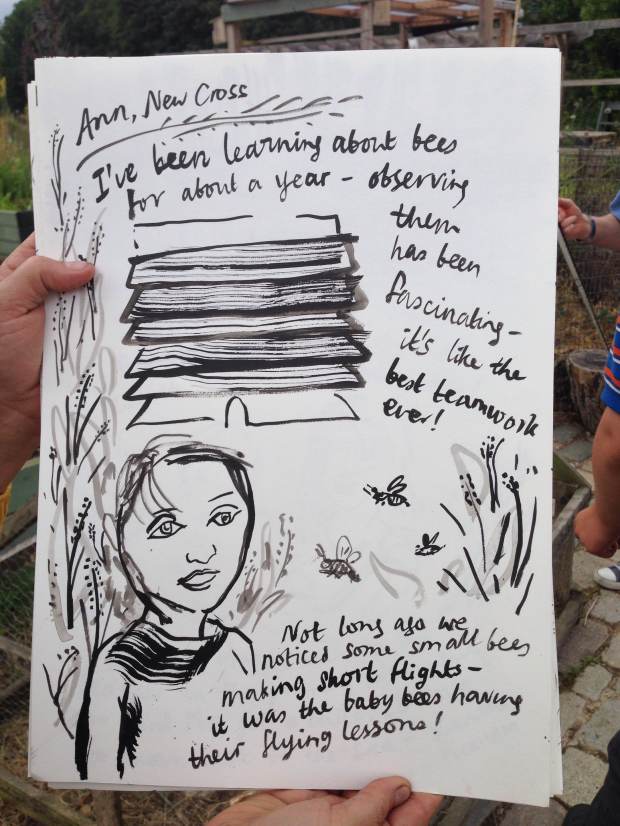 Ann, New Cross
I've been learning about bees
for about a year - observing
them
has been
fascinating -
it's like the
best teamwork
ever!
Not long ago we
noticed some small bees
making short flights -
it was the baby bees having
their flying lessons!